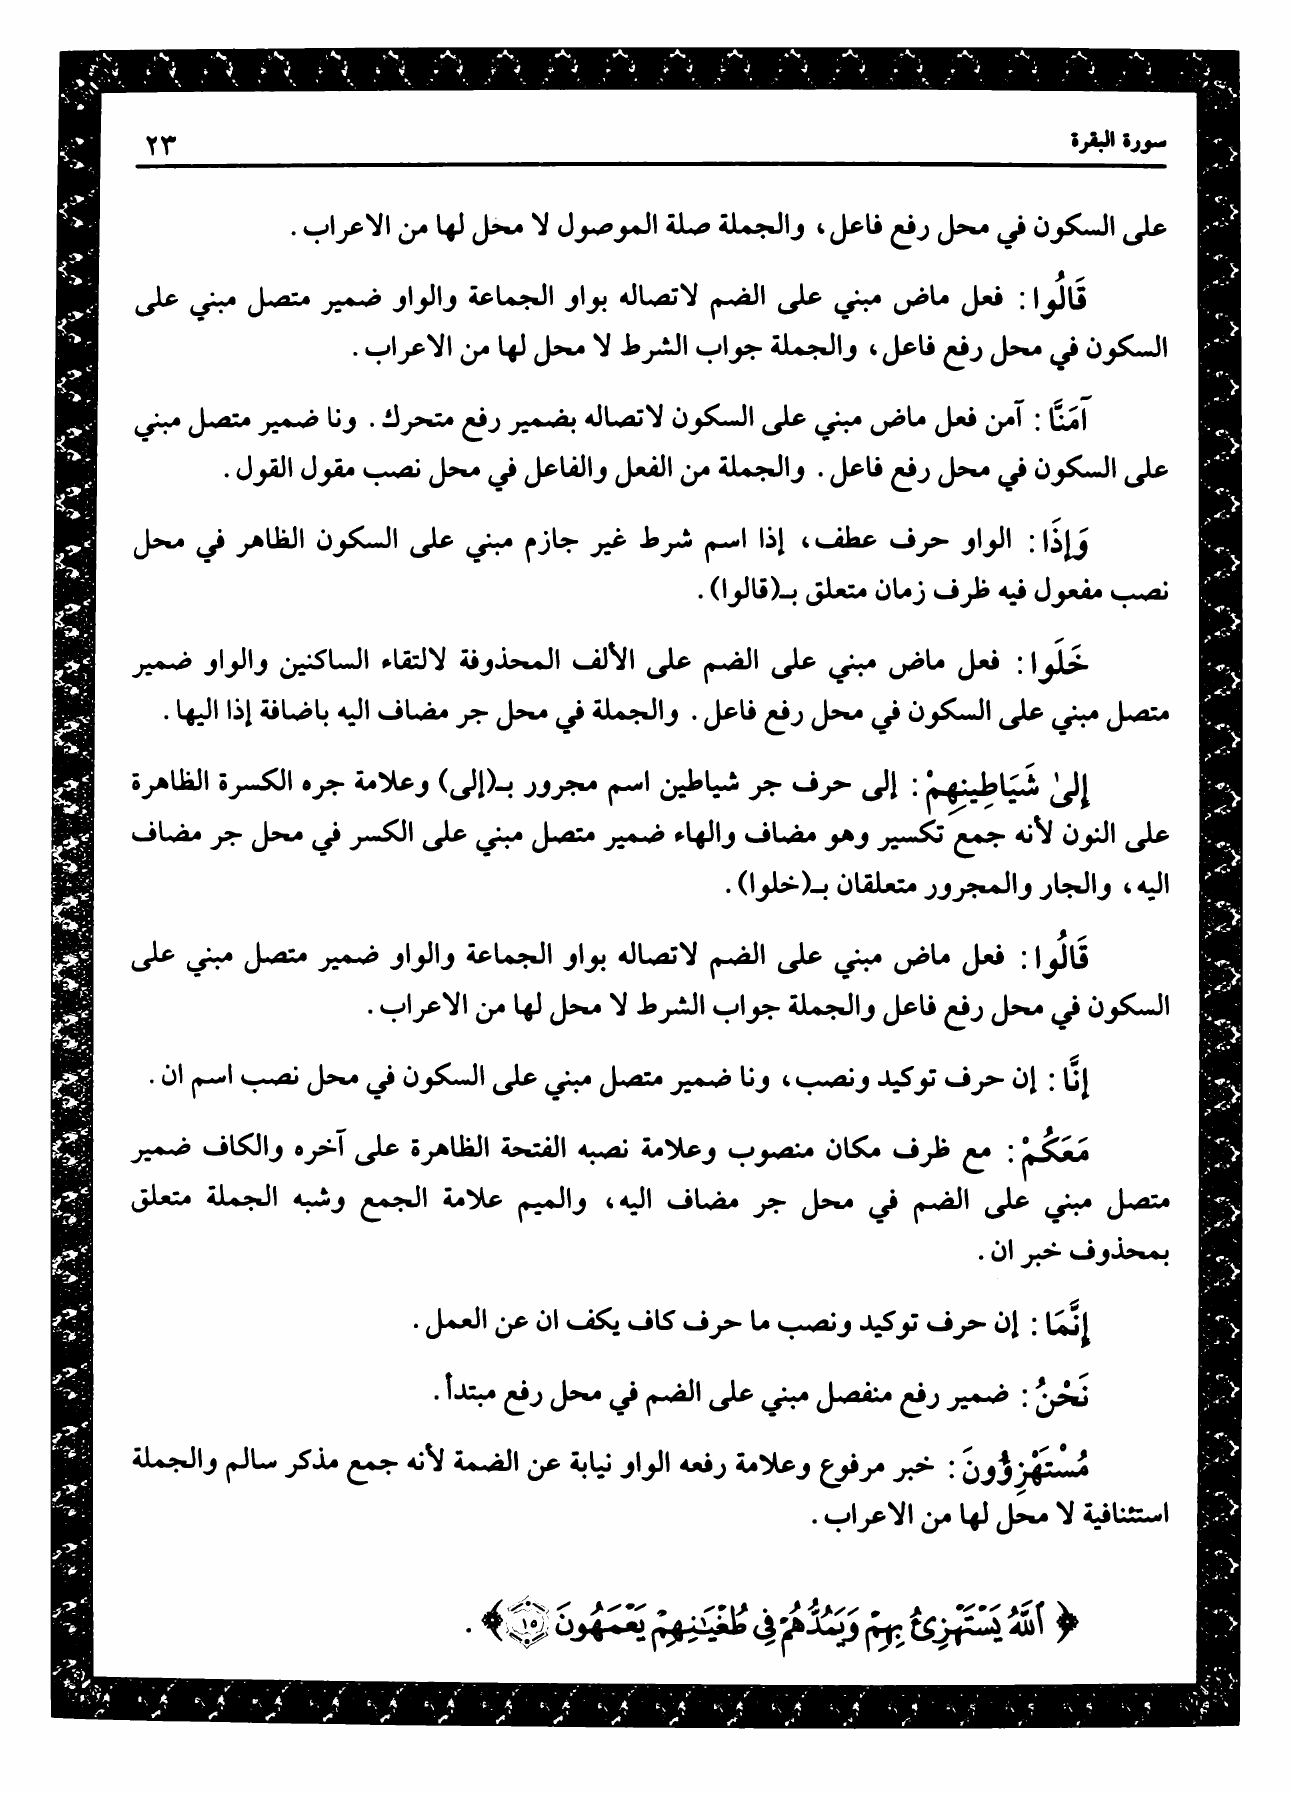 سورة البقرة ٢٣
على السكون في محل رفع فاعل، والجملة صلة الموصول لا محل لها من الاعراب.
قَالُوا: فعل ماض مبني على الضم لاتصاله بواو الجماعة والواو ضمير متصل مبني على
السكون في محل رفع فاعل، والجملة جواب الشرط لا محل لها من الاعراب.
آمَنَّا: آمن فعل ماض مبني على السكون لاتصاله بضمير رفع متحرك. ونا ضمير متصل مبني
على السكون في محل رفع فاعل. والجملة من الفعل والفاعل في محل نصب مقول القول.
وَإذَا: الواو حرف عطف، إذا اسم شرط غير جازم مبني على السكون الظاهر في محل
نصب مفعول فيه ظرف زمان متعلق بـ(قالوا).
خَلَوا: فعل ماض مبني على الضم على الألف المحذوفة لالتقاء الساكنين والواو ضمير
متصل مبني على السكون في محل رفع فاعل. والجملة في محل جر مضاف اليه باضافة إذا اليها.
إلىٰ شَيَاطِينِهِمْ: إلى حرف جر شياطين اسم مجرور بـ(إلى) وعلامة جره الكسرة الظاهرة
على النون لأنه جمع تكسير وهو مضاف والهاء ضمير متصل مبني على الكسر في محل جر مضاف
اليه، والجار والمجرور متعلقان بـ(خلوا).
قَالُوا: فعل ماض مبني على الضم لاتصاله بواو الجماعة والواو ضمير متصل مبني على
السكون في محل رفع فاعل والجملة جواب الشرط لا محل لها من الاعراب.
إنَّا: إن حرف توكيد ونصب، ونا ضمير متصل مبني على السكون في محل نصب اسم ان.
مَعَكُمْ: مع ظرف مكان منصوب وعلامة نصبه الفتحة الظاهرة على آخره والكاف ضمير
متصل مبني على الضم في محل جر مضاف اليه، والميم علامة الجمع وشبه الجملة متعلق
بمحذوف خبر ان.
إنَّمَا: إن حرف توكيد ونصب ما حرف كاف يكف ان عن العمل.
نَحْنُ: ضمير رفع منفصل مبني على الضم في محل رفع مبتدأ.
مُسْتَهْزِؤُونَ: خبر مرفوع وعلامة رفعه الواو نيابة عن الضمة لأنه جمع مذكر سالم والجملة
استئنافية لا محل لها من الاعراب.
﴿ ٱللَّهُ يَسْتَهْزِئُ بِهِمْ وَيَمُدُّهُمْ فِى طُغْيَـٰنِهِمْ يَعْمَهُونَ ١٥ ﴾.